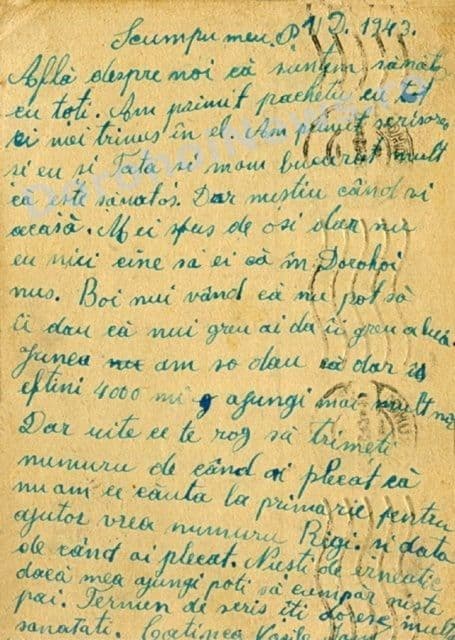 Scumpu meu. P 1 D. 1943.
Află despre noi că suntem sănat
cu toți. Am primit pachetu cu tot
ci mai trimus în el. Am primit scrisorea
si eu si Tata si mam bucurat mult
că ește sănatos. Dar mistiu când vi
acasă. Mei spus de osi dar nu
eu nici cine să ei că în Dorohoi
nus. Boi nui vând că nu pot să
îi dau că nui greu ai da îi greu a lua.
Junca am so dau că dar îs
eftini 4000 mi agungi mai mult
Dar uite ce te rog să trimeti
numuru de când ai plecat că
nu am ce căuta la primărie pentru
ajutor vrea numuru Regi. si data
de când ai plecat. Niești de
dacă mea ajungi poti să cumpar niște
pai. Termin de scris iti doresc mult
sanatati. Catinca Vasile